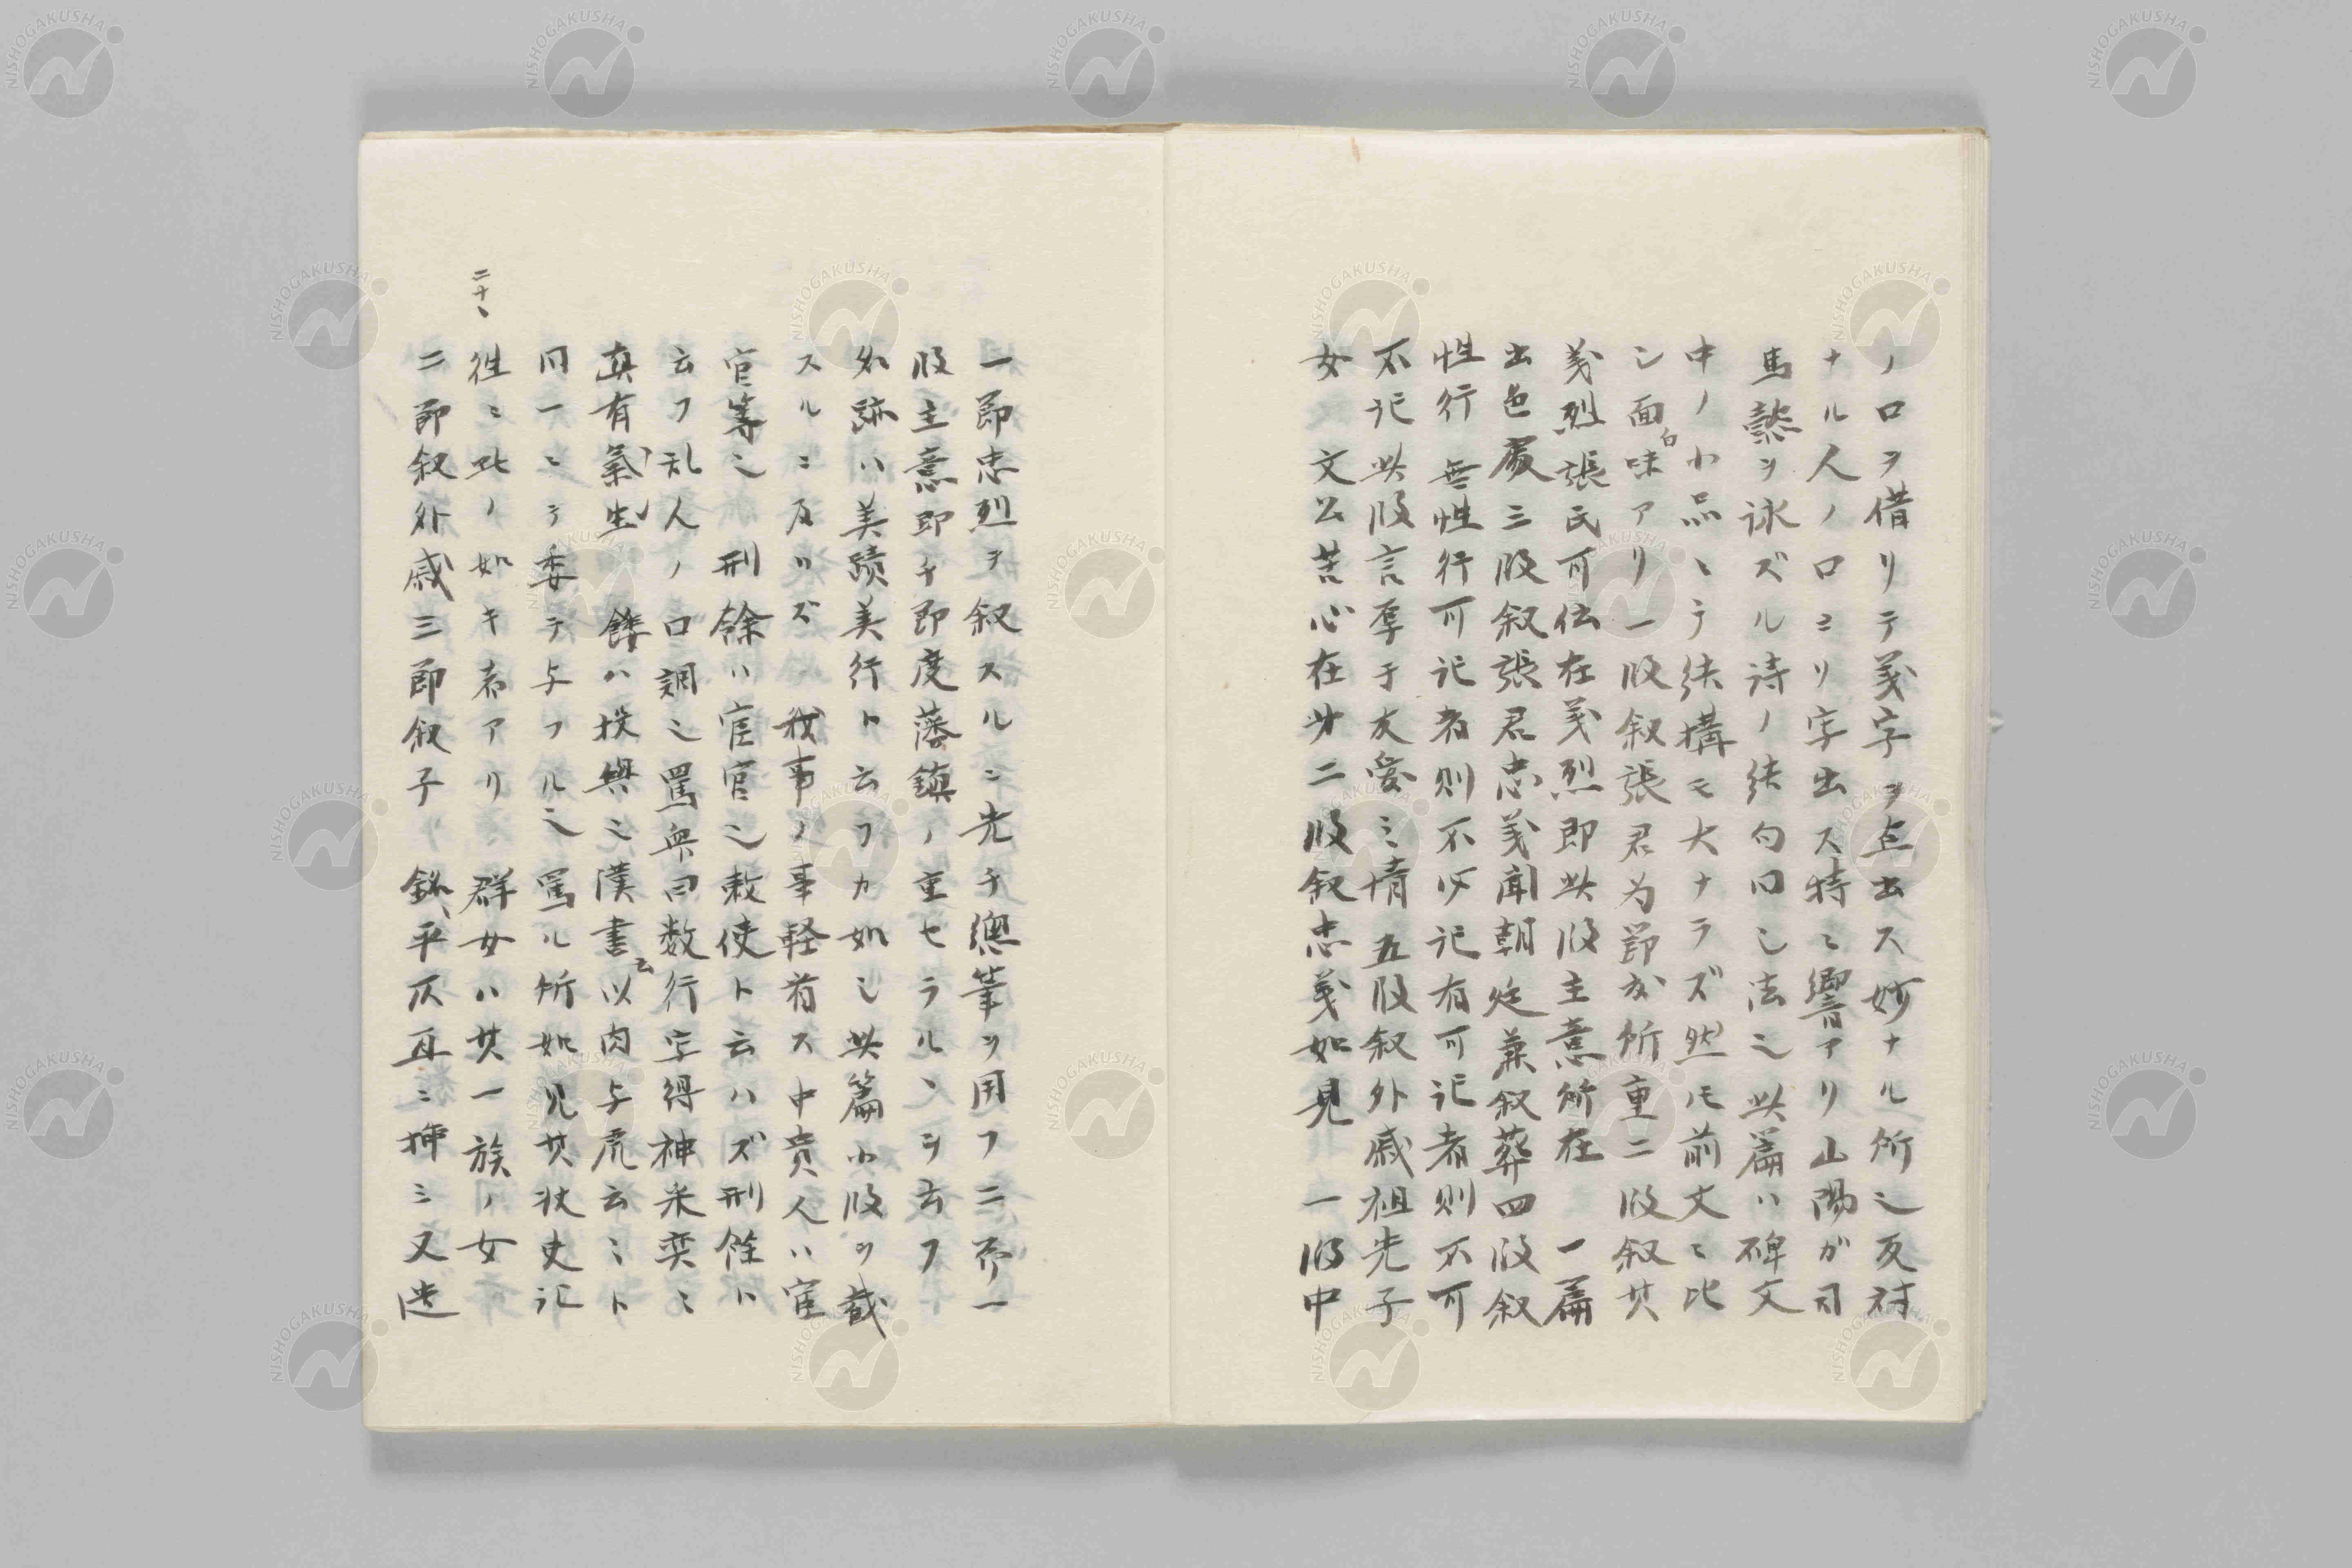 ノ口ヲ借リテ義字ヲ点出ス妙ナル所也反対
ナル人ノ口ヨリ字出ス特ニ響アリ山陽ガ司
馬懿ヲ詠ズル詩ノ結句同シ法也此篇ハ碑文
中ノ小品ニテ結構モ大ナラズ然ㇳモ前文ニ比
シ面白味アリ一段叙張君为節度所重二段叙其
義烈張氏可伝在義烈即此段主意所在 一篇
出色處三段叙張君忠義聞朝廷兼叙葬四段叙
性行 無性行可記者則不必記有可記者則不可
不記此段言厚于友愛之情五段叙外戚祖先子
女 文公苦心在第二段叙忠義如見 一段中
一節忠烈ヲ叙スルニ先チ總筆ヲ用フ二
段主意即チ節度藩鎮ノ重セラルヽヲ云フ
跡ハ美蹟美行ト云フカ如シ此篇小段ヲ截
スルニ及バズ 我事ノ事軽看ス中貴人ハ宦
官等也 刑餘ハ宦官也敕使ト云ハズ刑餘ト
云フ乱人ノ口調也罵無曰数行字得神采奕ニ
真有氣生 餧ハ投與也漢書云以肉与虎云ミト
同一ニシテ委テ与フル也罵ル所如見其状史記
二十、
徃ミ此ノ如キ者アリ 群女ハ其一族ノ女
二節叙外戚三節叙子 銘平仄互ニ押ミ又迭